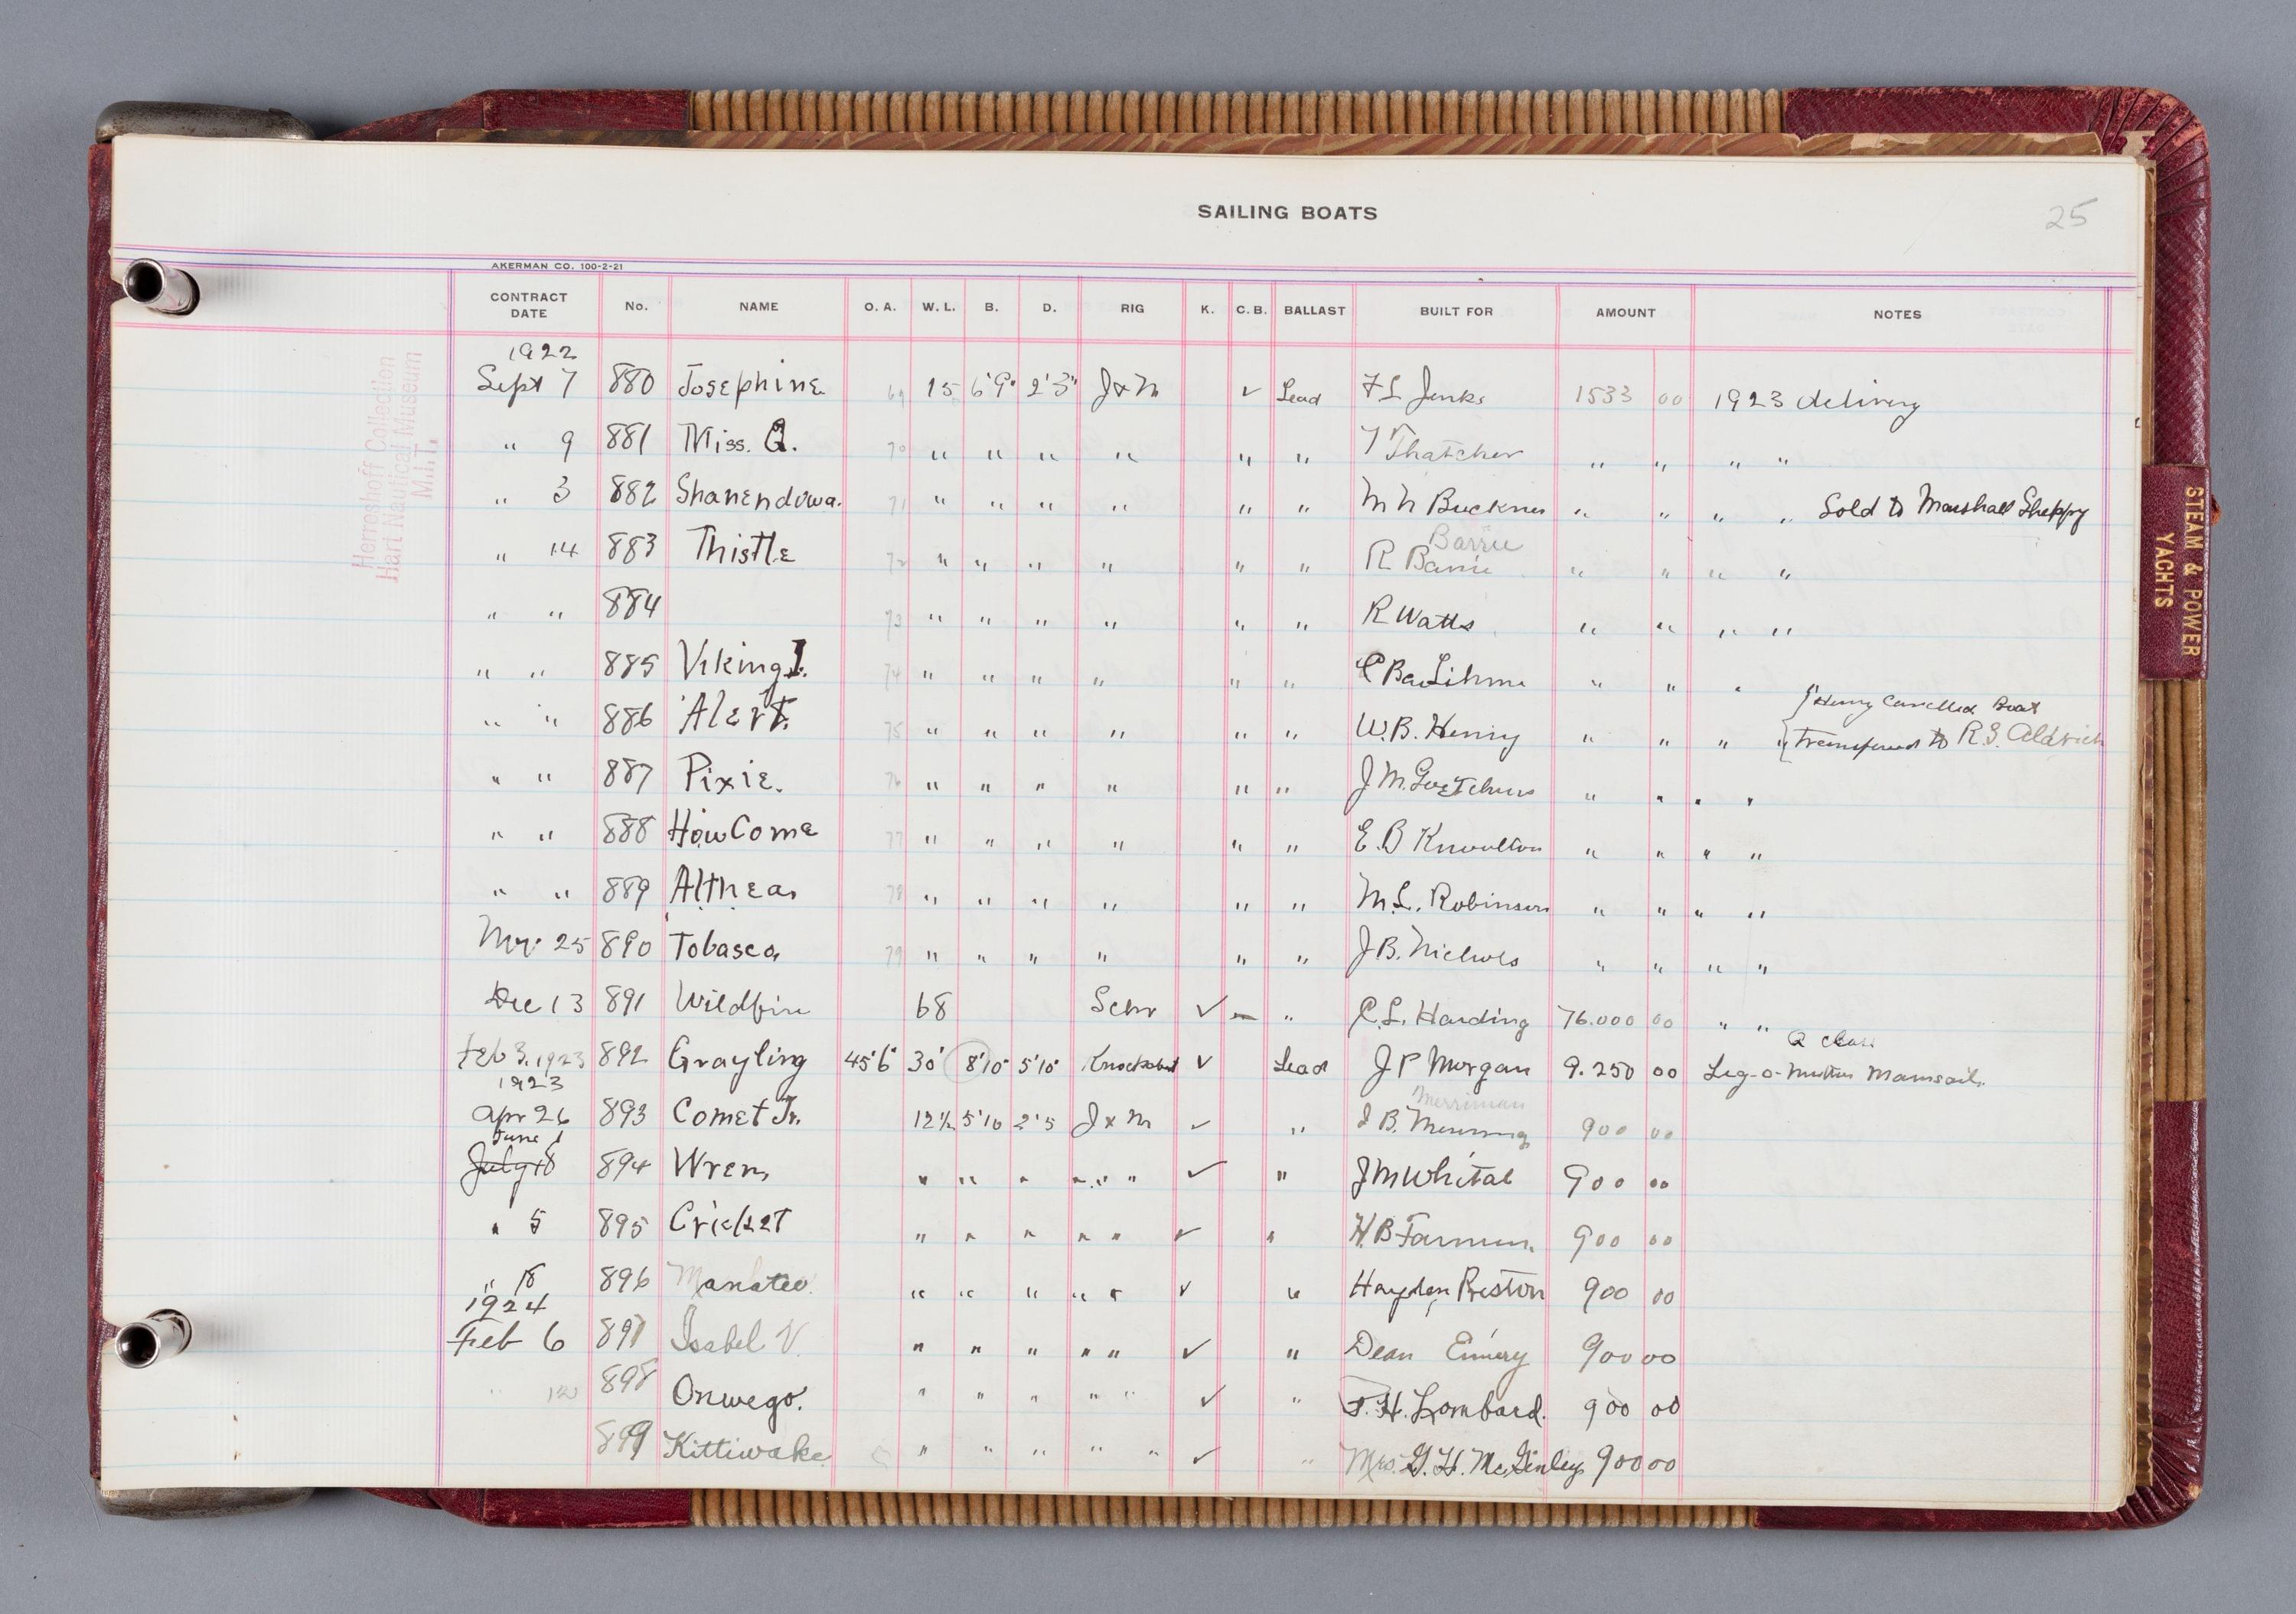 SAILING BOATS 25
AKERMAN CO. 100-2-21
CONTRACT DATE No. NAME O. A. W. L. B. D. RIG K. C. B. BALLAST BUILT FOR AMOUNT NOTES
1922
Sept 7 880 Josephine 69 15 6'9" 2'3" J & M ✓ Lead F L Jenks 1533 00 1923 delivery
" 9 881 Miss. Q. 70 " " " " " " T Thatcher " " " "
" 3 882 Shanendowa. 71 " " " " " " M N Buckner " " " " Sold to Marshall Sheppy
Barrie
" 14 883 Thistle 72 " " " " " " R Barrie " " " "
" " 884 73 " " " " " " R Watts " " " "
" " 885 Viking I. 74 " " " " " " " " "
Henry Cancelled Boat
" " 886 Alert. 75 " " " " " " W. B. Henry " " " " transferred to R. S. Aldrich
" " 887 Pixie. 76 " " " " " " J M. " " " "
" " 888 How Come 77 " " " " " " E. B Knowlton " " " "
" " 889 Althea 78 " " " " " " M. L. Robinson " " " "
Nov. 25 890 Tobasca 79 " " " " " " J B. Nichols " " " "
Dec 13 891 Wildfire 68 Schr ✓ " C. L. Harding 76.000 00 " "
Q class
Feb 3. 1923 892 Grayling 45'6" 30' 8'10" 5'10" Knockabout ✓ Lead J P Morgan 9.250 00 Leg-o-mutton Mainsail.
1923 Merriman
Apr 26 893 Comet Jr. 12½ 5'10 2'5 J & M ✓ " I B. 900 00
June 1
July 18 894 Wren, " " " " " ✓ " J M Whital 900 00
" 5 895 Cricket " " " " " ✓ " H. B Farmer. 900 00
" 18 896 Manatee. " " " " " ✓ " Hayden Preston 900 00
1924
Feb 6 897 Isabel V. " " " " " ✓ " Dean Emery 900 00
" 12 898 Onwego. " " " " " ✓ " F. H. Lombard. 900 00
899 Kittiwake " " " " " ✓ " Mrs. G. H. McGinley 900 00
Herreshoff Collection
Hart Nautical Museum
M.I.T.
STEAM & POWER
YACHTS